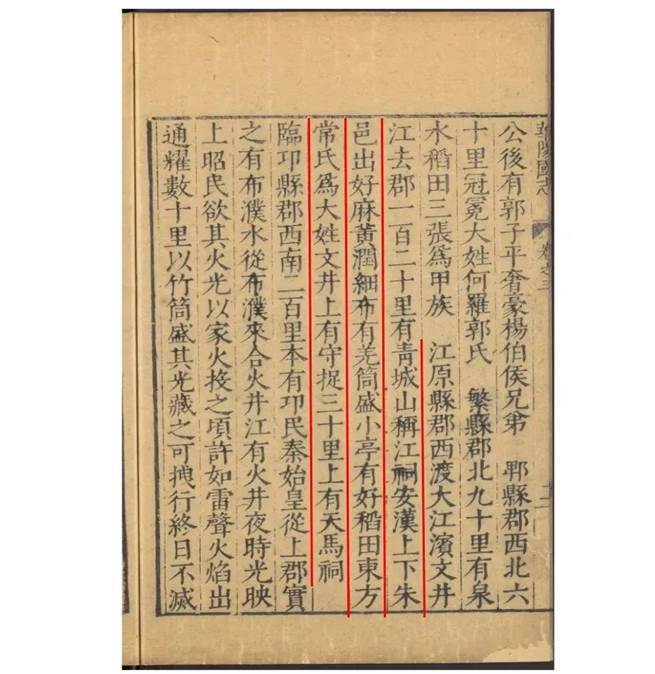 華陽國志 卷之三 十一
公後有郭子平奢豪楊伯侯兄弟 郫縣郡西北六
十里冠冕大姓何羅郭氏 繁縣郡北九十里有泉
水稻田三張爲甲族 江原縣郡西渡大江濱文井
江去郡一百二十里有靑城山稱江祠安漢上下朱
邑出好麻黃潤細布有羌筒盛小亭有好稻田東方
常氏爲大姓文井上有守捉三十里上有天馬祠
臨邛縣郡西南二百里本有邛民秦始皇從上郡實
之有布濮水從布濮來合火井江有火井夜時光映
上昭民欲其火光以家火投之頃許如雷聲火焰出
通耀數十里以竹筒盛其光藏之可拽行終日不滅